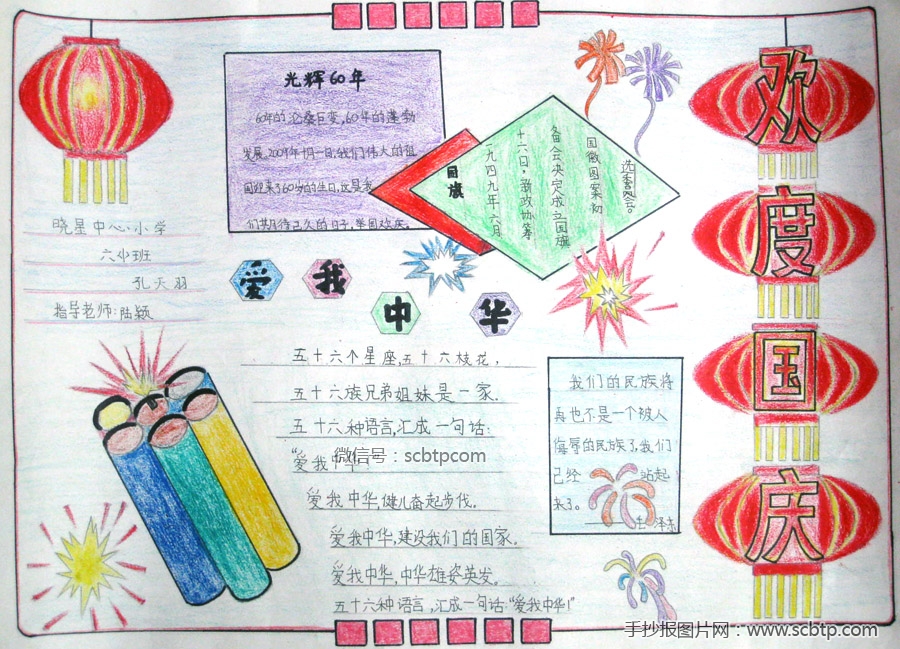 欢
度
国
庆
光辉60年
60年的沧桑巨变,60年的蓬勃
发展,2009年10月1日,我们伟大的祖
国迎来了60岁的生日,这是我
们期待已久的日子,举国欢庆。
国旗
一九四九年六月
十六日,新政协筹
备会决定成立国旗
国徽图案初
选委员会。
晓星中心小学
孔天羽
指导老师:陆颖
爱我
中华
五十六个星座,五十六枝花,
五十六族兄弟姐妹是一家.
五十六种语言,汇成一句话:
"爱我中华!"
微信号:scbtpcom
爱我中华,健儿奋起步伐.
爱我中华,建设我们的国家.
爱我中华,中华雄姿英发.
五十六种语言,汇成一句话:"爱我中华!"
我们的民族将
再也不是一个被人
侮辱的民族了,我们
已经站起
来了。
手抄报图片网:www.scbtp.com